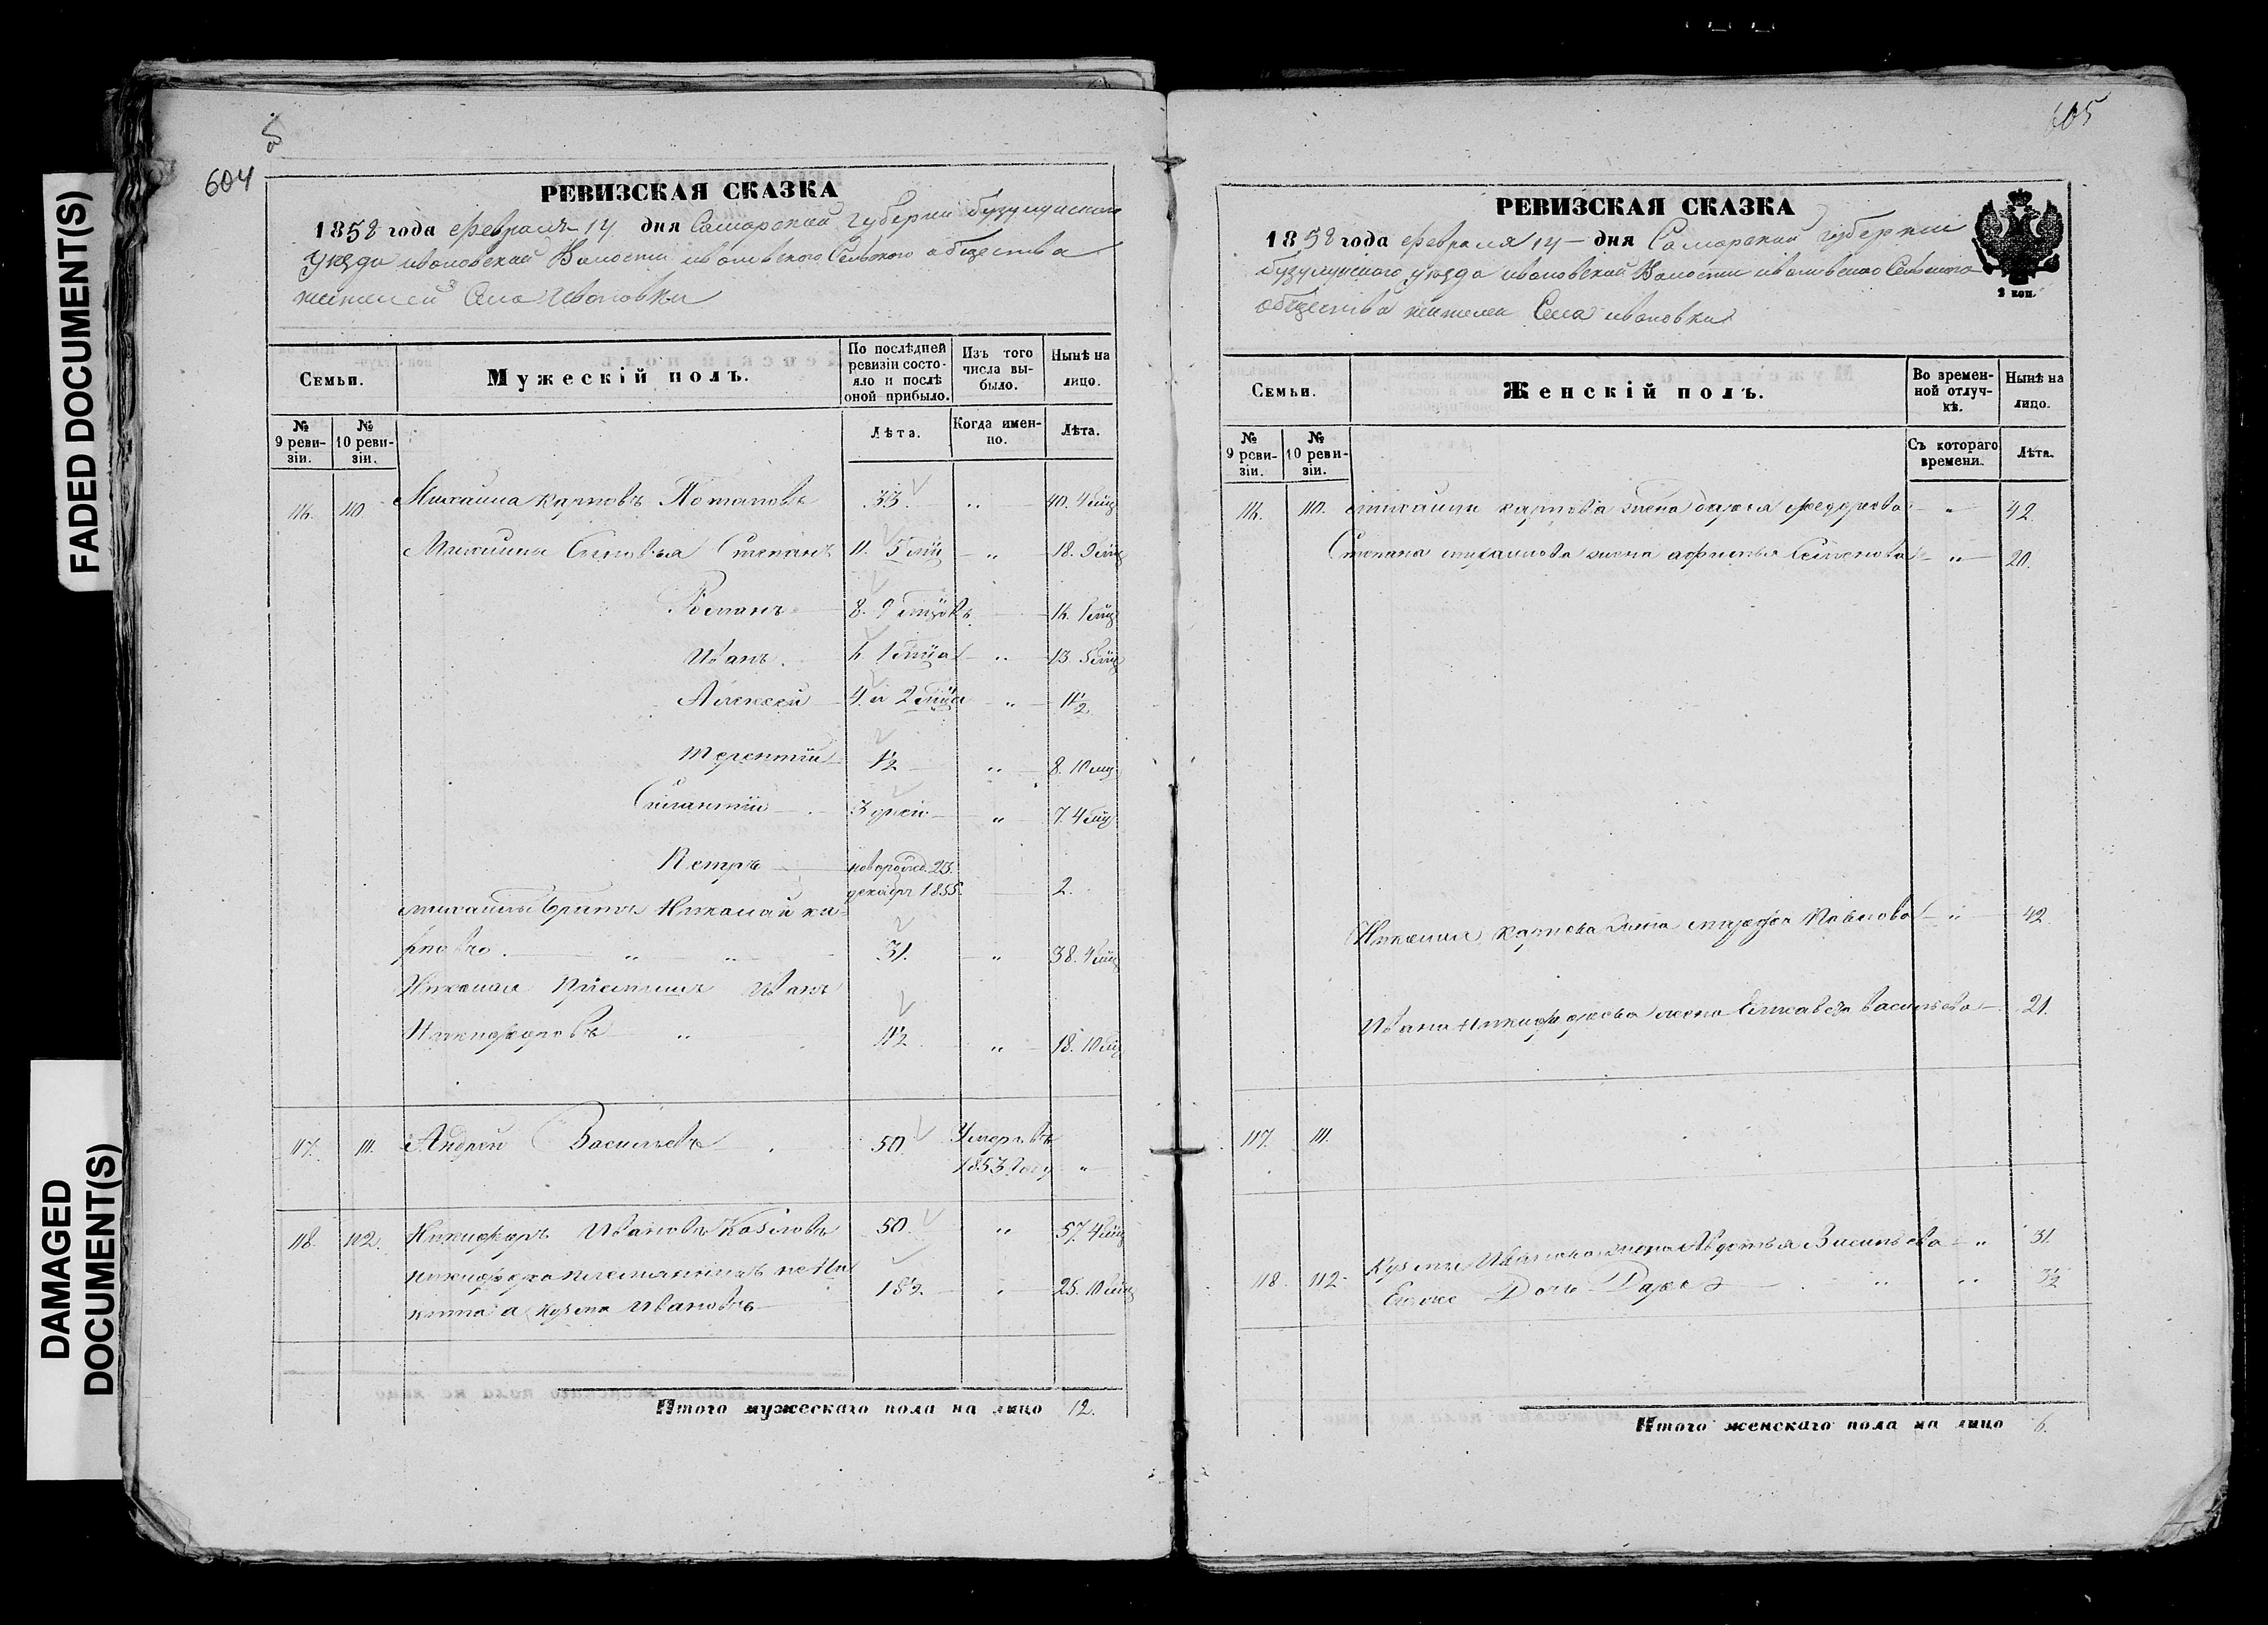 FADED DOCUMENT(S)
DAMAGED
DOCUMENT(S)
604
РЕВИЗСКАЯ СКАЗКА
1858 года февраля 14 дня Самарской губернии бузулукского
уезда ивановской Волости ивановского Сельского общества
жителей Села Ивановки
Семьи.
Мужескій полъ.
По послѣдней ревизіи состояло и послѣ оной прибыло.
Изъ того числа выбыло.
Нынѣ на лицо.
№ 9 ревизіи.
№ 10 ревизіи.
Лѣта.
Когда именно.
Лѣта.
116. 110 Михаила Карповъ Потаповъ 33. „ 40. 4 мѣц
Михаилы Сыновья Степанъ 11. 5 мѣц „ 18. 9 мѣц
Романъ 8. 9 мѣцовъ 16. 1 мѣц
Иванъ. 6 1 мѣца „ 13. 5 мѣц
Алексей 4. и 2 мѣца „ 11½
Терентій 1½ „ 8. 10 мѣц
Силантій 3 дней „ 7. 4 мѣц
Петръ новорожд. 23.
декабр 1855. 2.
михаилы братъ Николай ка-
рповъ. „ „ 31. „ 38. 4 мѣц
Николая Пріемышъ Иванъ
Никифоровъ „ 11½ „ 18. 10 мѣц
117. 111. Андрей Васильевъ 50. Умеръ въ
1853 году „
118. 112. Никифоръ Ивановъ Козловъ 50. „ 57. 4 мѣц
никифора племянникъ
а кузма Ивановъ 18½ „ 25. 10 мѣц
Итого мужескаго пола на лицо 12.
605
РЕВИЗСКАЯ СКАЗКА
1858 года февраля 14 дня Самарской губернии
бузулукского уезда ивановской Волости ивановского Сельского
общества жителей Села ивановки
2 коп.
Семьи.
Женскій полъ.
Во временной отлучкѣ.
Нынѣ на лицо.
№ 9 ревизіи.
№ 10 ревизіи.
Съ котораго времени.
Лѣта.
116. 110. михаилы карпова жена дарья федорова „ 42.
Степана михаилова жена афимья Семенова „ 20.
Николая карпова жена марфа Павлова „ 42.
Ивана Никифорова жена Елисавета васильева 21.
117. 111.
118. 112. Кузмы Иванова жена Авдотья Васильева „ 31.
Ихъ же Дочь Дарья „ „ 3½
Итого женскаго пола на лицо 6.